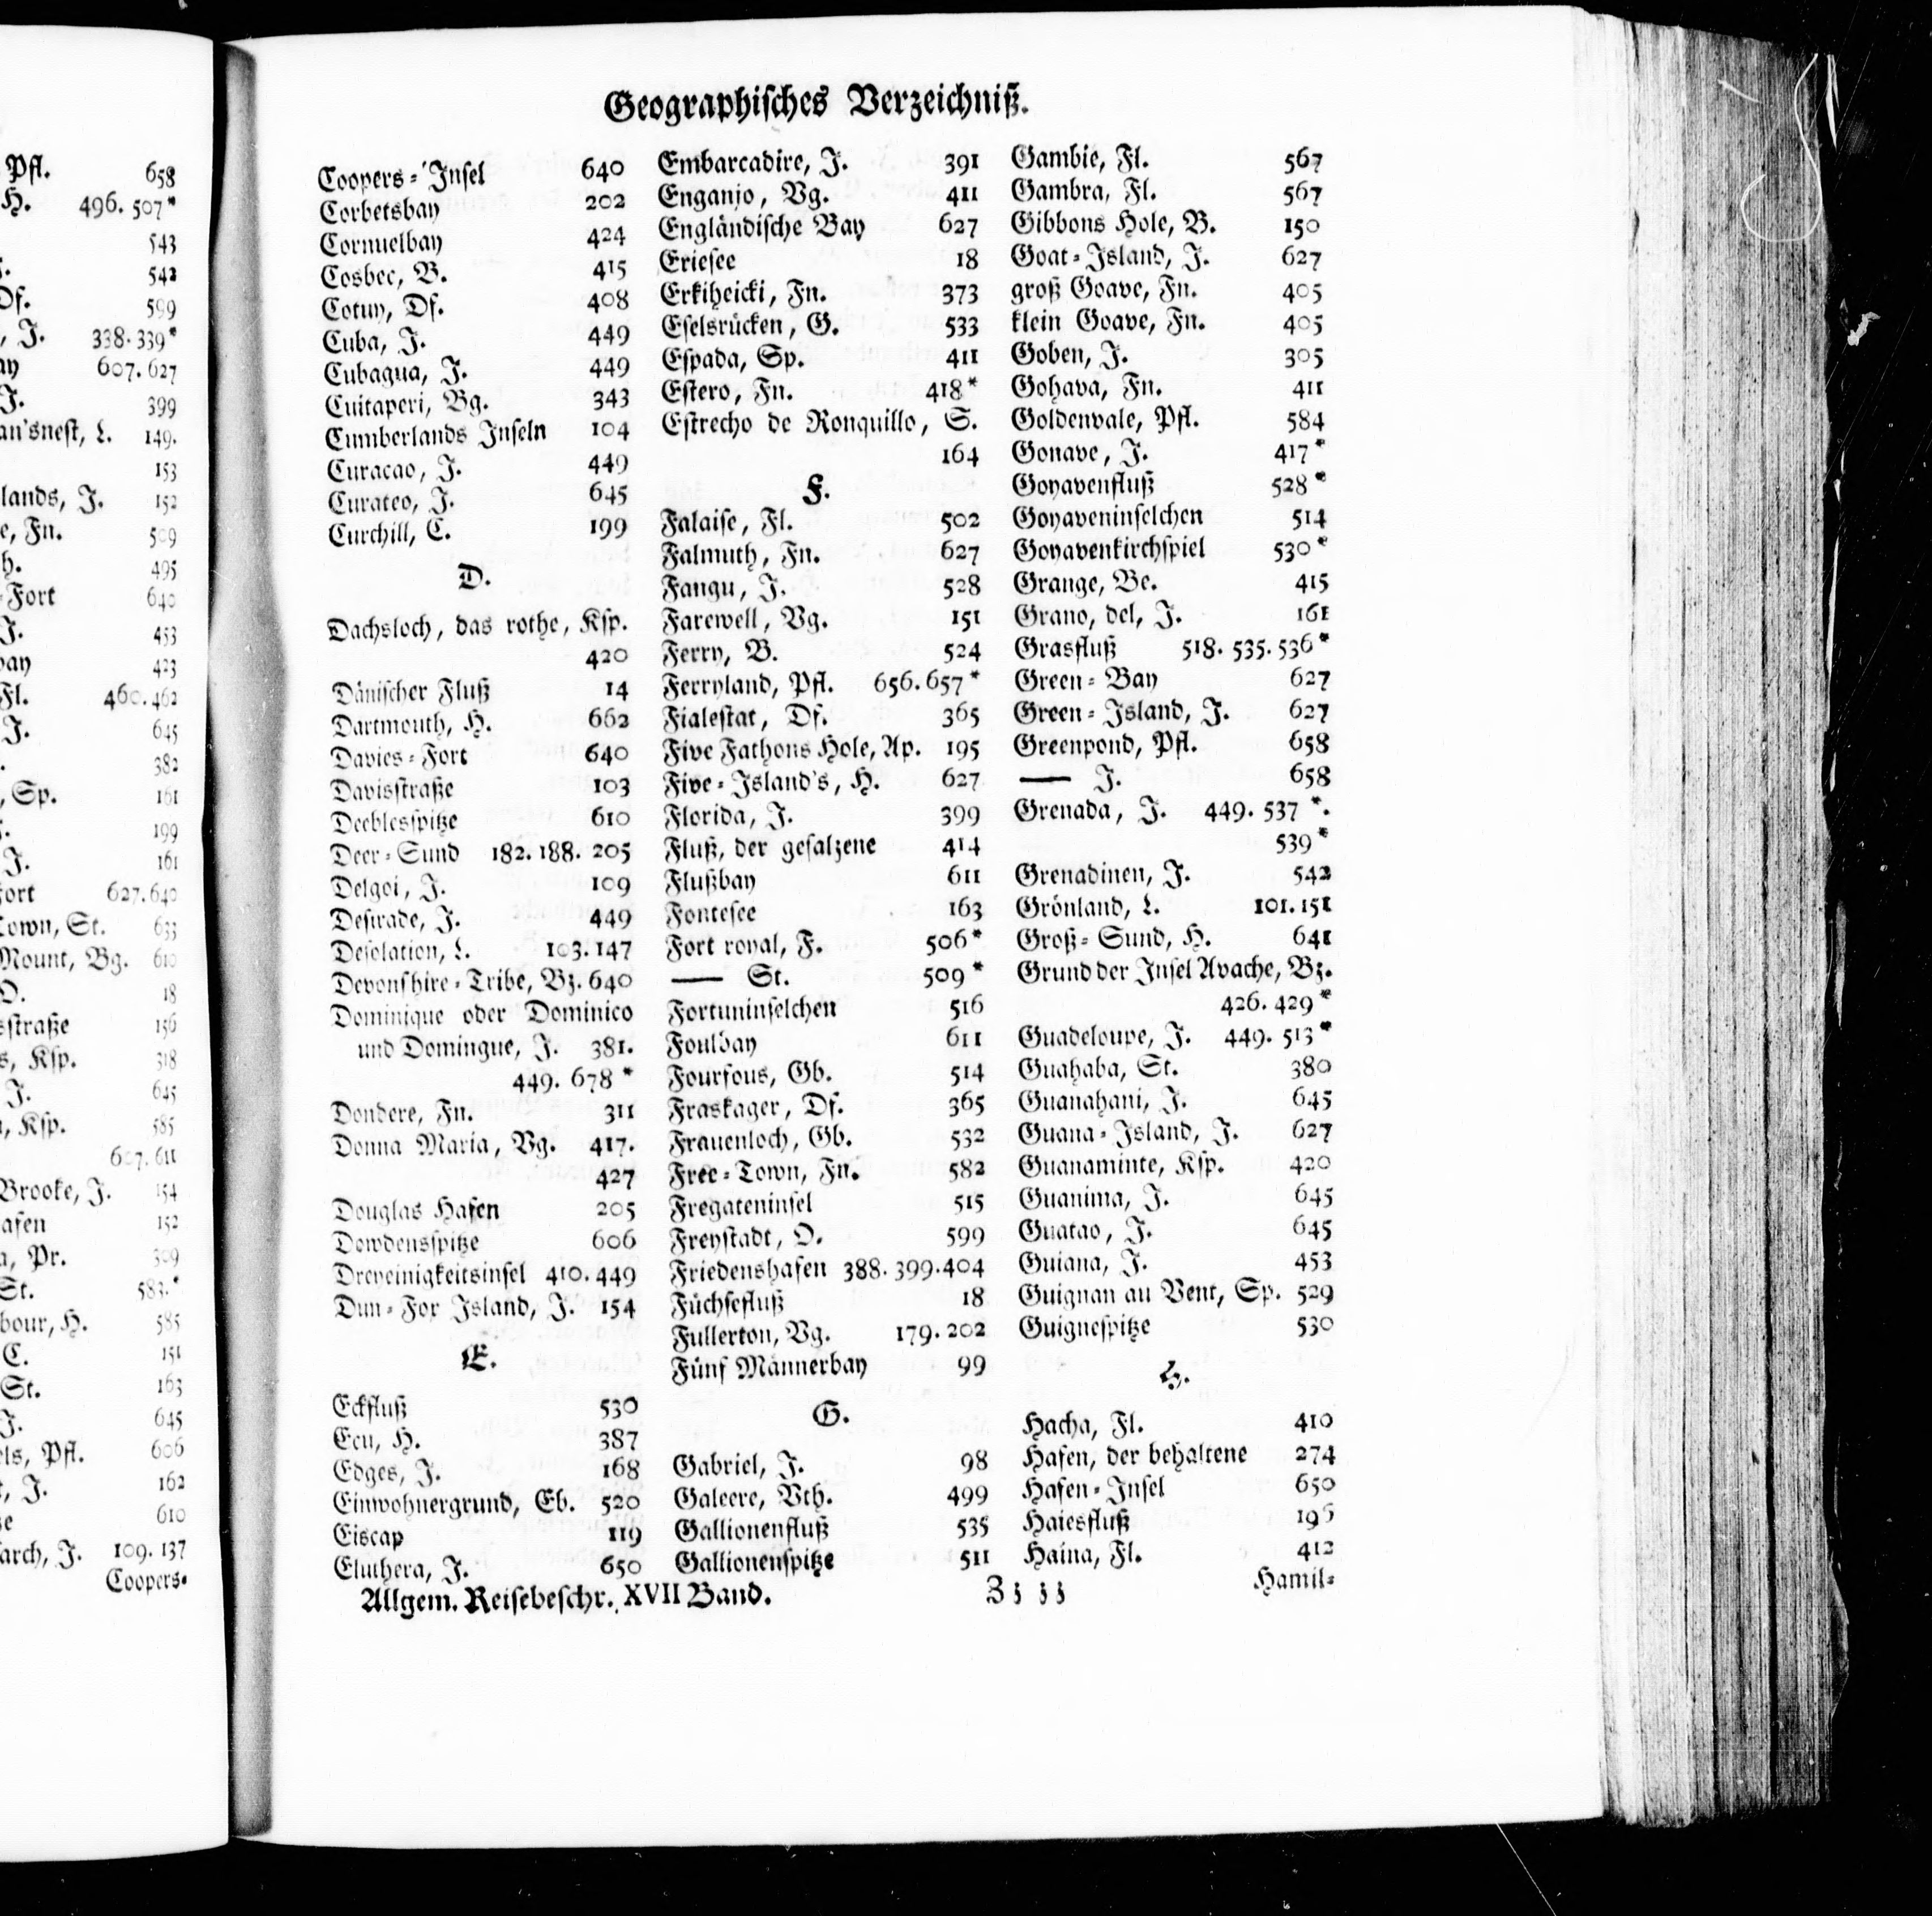 Pfl. 658
H. 496. 507*
543
542
Df. 599
, J. 338. 339*
ay 607. 627
J. 399
an'snest, L. 149.
153
lands, J. 152
e, Fn. 509
h. 495
-Fort 640
J. 453
bay 423
Fl. 460. 462
J. 645
382
, Sp. 161
199
J. 161
Fort 627. 640
Town, St. 633
Mount, Bg. 610
O. 18
sstraße 156
s, Ksp. 318
J. 645
, Ksp. 585
607. 611
Brooke, J. 154
afen 152
a, Pr. 309
St. 583.*
bour, H. 585
C. 151
St. 163
J. 645
els, Pfl. 606
, J. 162
ze 610
arch, J. 109. 137
Coopers-
Geographisches Verzeichniß.
Coopers-Insel 640
Corbetsbay 202
Cornuelbay 424
Cosbec, B. 415
Cotuy, Df. 408
Cuba, J. 449
Cubagua, J. 449
Cuitaperi, Bg. 343
Cumberlands Inseln 104
Curacao, J. 449
Curateo, J. 645
Curchill, C. 199
D.
Dachsloch, das rothe, Ksp.
420
Dänischer Fluß 14
Dartmouth, H. 662
Davies-Fort 640
Davisstraße 103
Deeblesspitze 610
Deer-Sund 182. 188. 205
Delgoi, J. 109
Desirade, J. 449
Desolation, L. 103. 147
Devonshire-Tribe, Bz. 640
Dominique oder Dominico
und Domingue, J. 381.
449. 678 *
Dondere, Fn. 311
Donna Maria, Vg. 417.
427
Douglas Hafen 205
Dowdensspitze 606
Dreyeinigkeitsinsel 410. 449
Dun-Fox Island, J. 154
E.
Eckfluß 530
Ecu, H. 387
Edges, J. 168
Einwohnergrund, Eb. 520
Eiscap 119
Eluthera, J. 650
Embarcadire, J. 391
Enganjo, Vg. 411
Engländische Bay 627
Eriesee 18
Erkiheicki, Fn. 373
Eselsrücken, G. 533
Espada, Sp. 411
Estero, Fn. 418*
Estrecho de Ronquillo, S.
164
F.
Falaise, Fl. 502
Falmuth, Fn. 627
Fangu, J. 528
Farewell, Vg. 151
Ferry, B. 524
Ferryland, Pfl. 656. 657*
Fialestat, Df. 365
Five Fathons Hole, Ap. 195
Five-Island's, H. 627
Florida, J. 399
Fluß, der gesalzene 414
Flußbay 611
Fontesee 163
Fort royal, F. 506*
—— St. 509 *
Fortuninselchen 516
Foulbay 611
Fourfous, Gb. 514
Fraskager, Df. 365
Frauenloch, Gb. 532
Free-Town, Fn. 582
Fregateninsel 515
Freystadt, O. 599
Friedenshafen 388. 399. 404
Füchsefluß 18
Fullerton, Vg. 179. 202
Fünf Männerbay 99
G.
Gabriel, J. 98
Galeere, Vth. 499
Gallionenfluß 535
Gallionenspitze 511
Gambié, Fl. 567
Gambra, Fl. 567
Gibbons Hole, B. 150
Goat-Island, J. 627
groß Goave, Fn. 405
klein Goave, Fn. 405
Goben, J. 305
Gohava, Fn. 411
Goldenvale, Pfl. 584
Gonave, J. 417*
Goyavenfluß 528*
Goyaveninselchen 514
Goyavenkirchspiel 530*
Grange, Be. 415
Grano, del, J. 161
Grasfluß 518. 535. 536*
Green-Bay 627
Green-Island, J. 627
Greenpond, Pfl. 658
—— J. 658
Grenada, J. 449. 537 *.
539*
Grenadinen, J. 542
Grönland, L. 101. 151
Groß-Sund, H. 641
Grund der Insel Avache, Bz.
426. 429*
Guadeloupe, J. 449. 513*
Guahaba, St. 380
Guanahani, J. 645
Guana-Island, J. 627
Guanaminte, Ksp. 420
Guanima, J. 645
Guatao, J. 645
Guiana, J. 453
Guignan au Vent, Sp. 529
Guignespitze 530
H.
Hacha, Fl. 410
Hafen, der behaltene 274
Hafen-Insel 650
Haiesfluß 196
Haina, Fl. 412
Allgem. Reisebeschr. XVII Band. Zz zz Hamil-